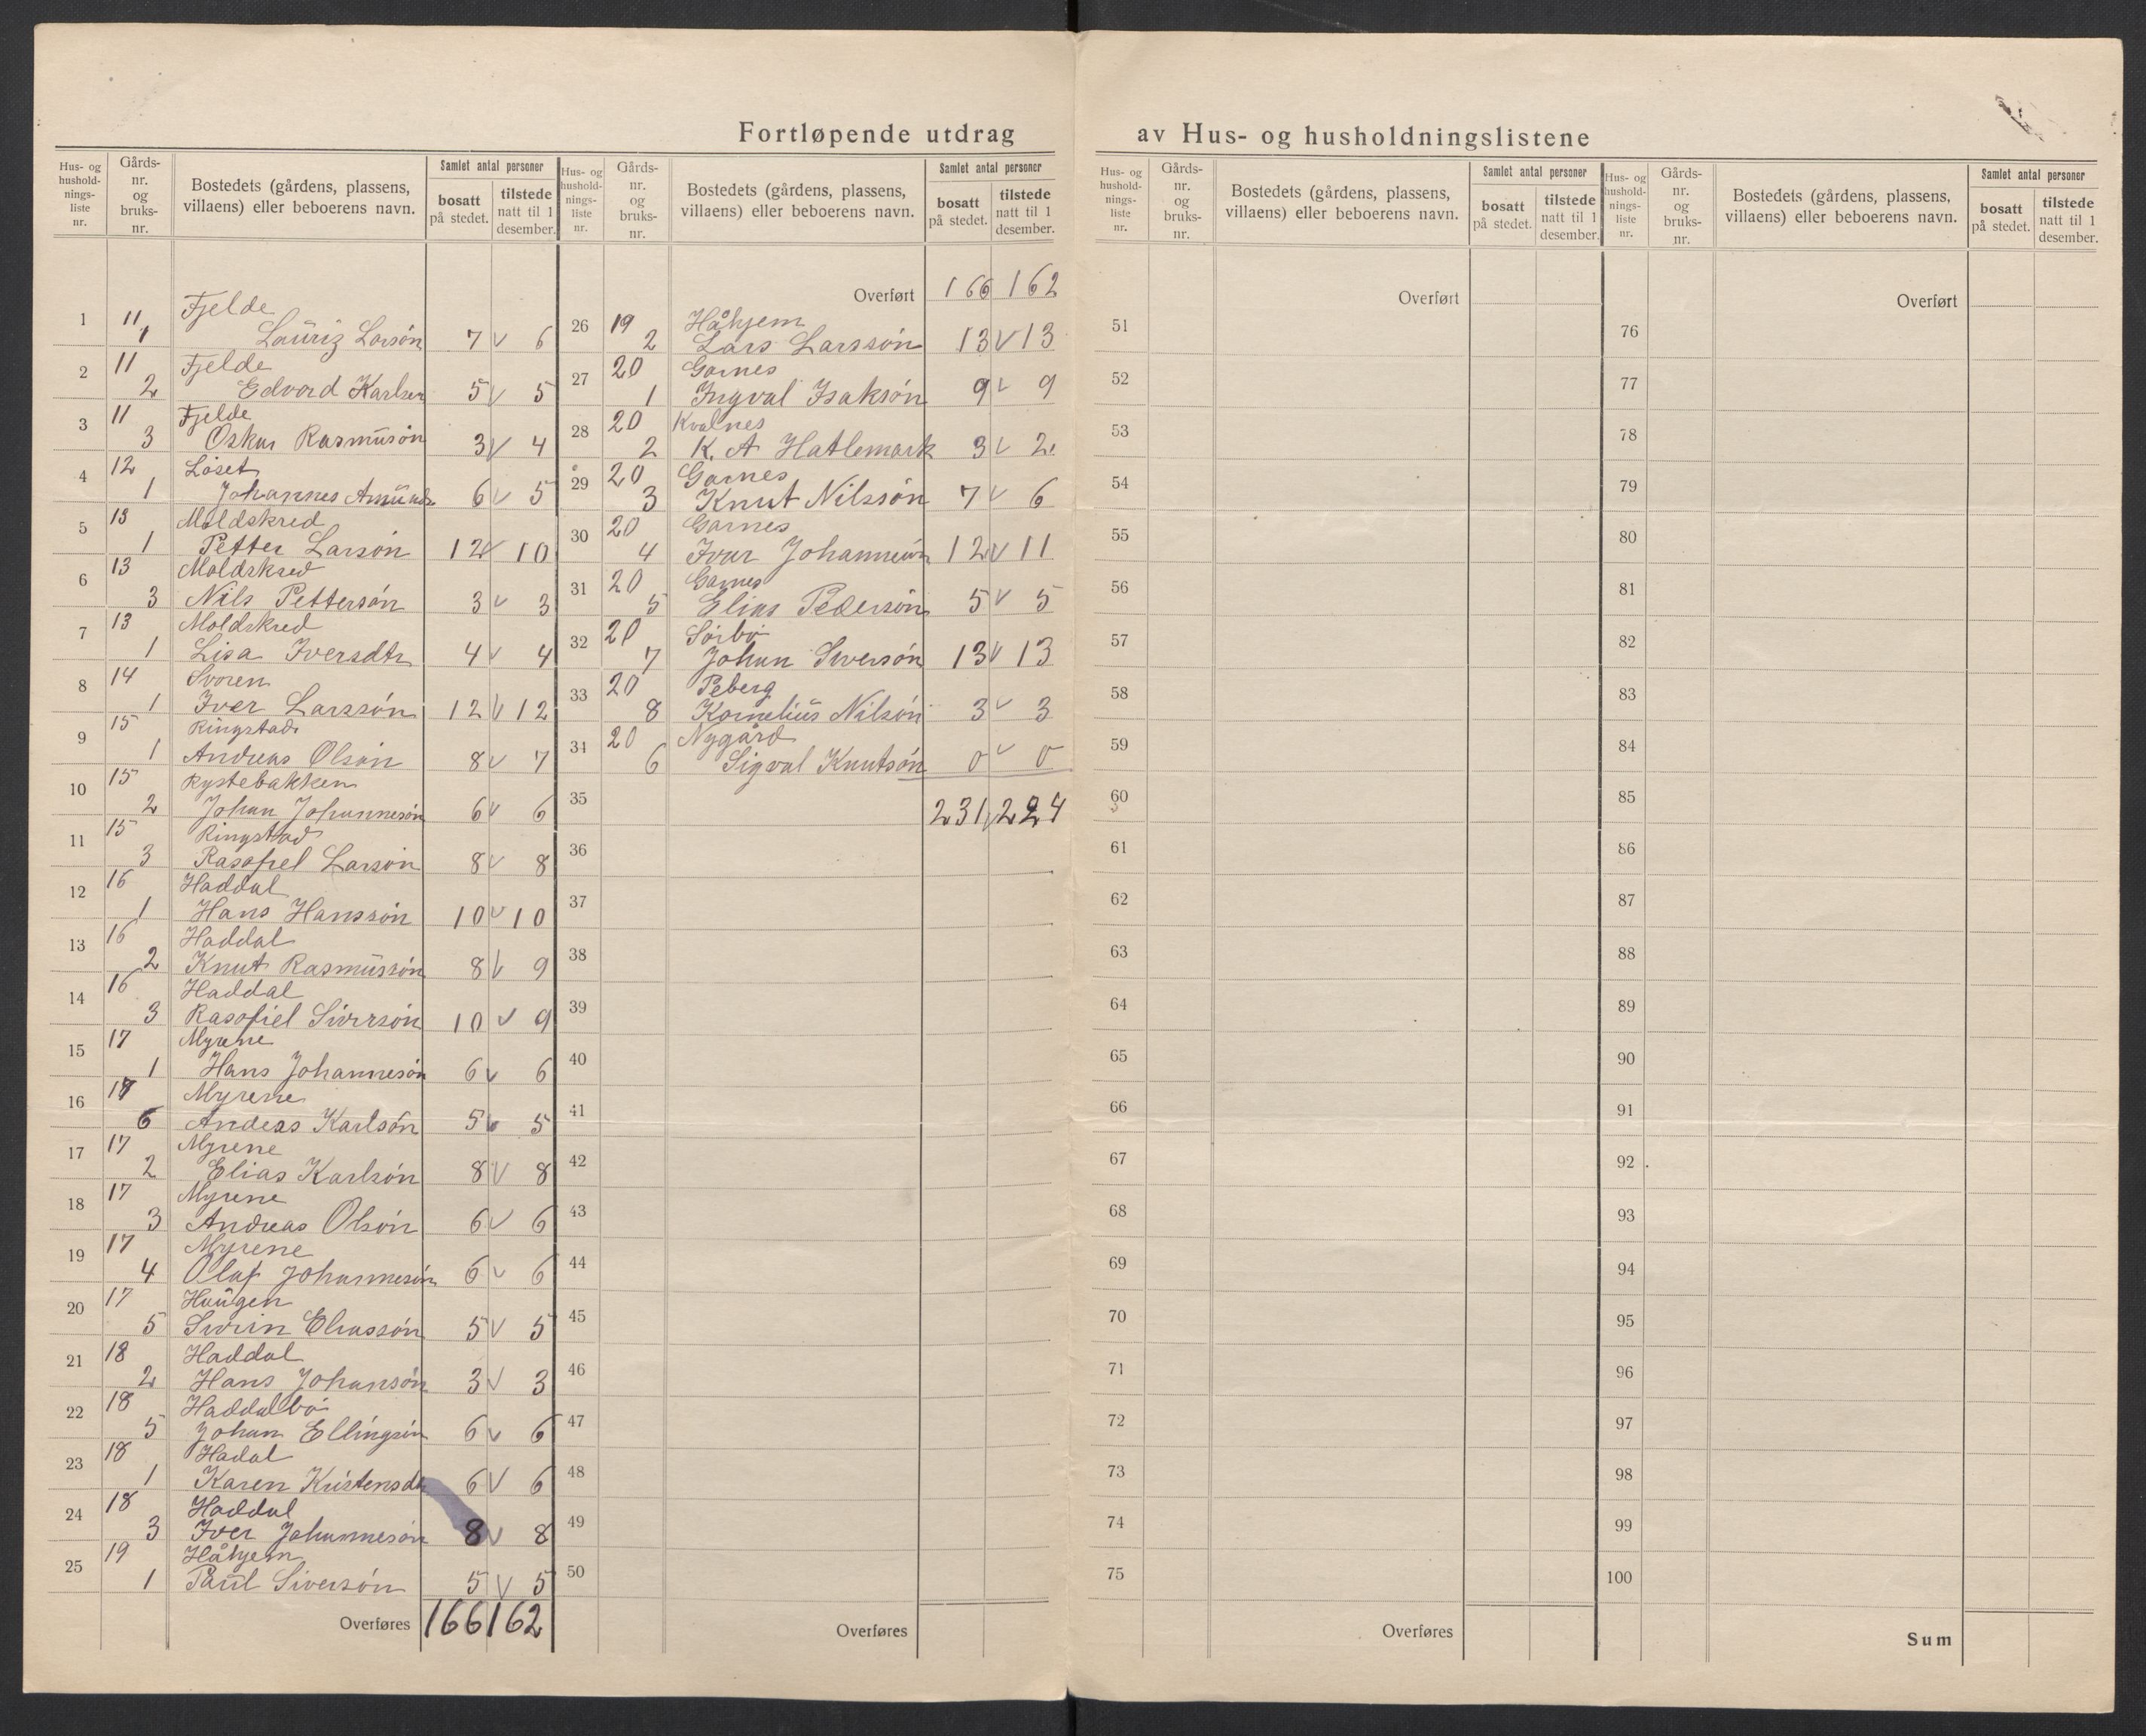 Fortløpende utdrag av Hus- og husholdningslistene
Hus- og husholdnings-liste nr. Gårds-nr. og bruks-nr. Bostedets (gårdens, plassens, villaens) eller beboerens navn. Samlet antal personer bosatt på stedet. tilstede natt til 1 desember.
1 11 Fjelde
1 Lauriz Larsøn 7 v 6
2 11 Fjelde
2 Edvard Karlsen 5 v 5
3 11 Fjelde
3 Oskar Rasmusøn 3 v 4
4 12 Løset
1 Johannes Amunds 6 v 5
5 13 Moldskred
1 Petter Larsøn 12 v 10
6 13 Moldskred
3 Nils Pettersøn 3 v 3
7 13 Moldskred
1 Lisa Iversdtr 4 v 4
8 14 Svoren
1 Iver Larssøn 12 v 12
9 15 Ringstad
1 Andreas Olsøn 8 v 7
10 15 Rystebakken
2 Johan Johannesøn 6 v 6
11 15 Ringstad
3 Rasofiel Larsøn 8 v 8
12 16 Haddal
1 Hans Hanssøn 10 v 10
13 16 Haddal
2 Knut Rasmussøn 8 v 9
14 16 Haddal
3 Rasofiel Siversøn 10 v 9
15 17 Myrene
1 Hans Johannesøn 6 v 6
16 17 Myrene
6 Anders Karlsøn 5 v 5
17 17 Myrene
2 Elias Karlsøn 8 v 8
18 17 Myrene
3 Andreas Olsøn 6 v 6
19 17 Myrene
4 Olaf Johannesøn 6 v 6
20 17 Haugen
5 Sivrin Eliassøn 5 v 5
21 18 Haddal
2 Hans Johansøn 3 v 3
22 18 Haddalbø
5 Johan Ellingsøn 6 v 6
23 18 Hadal
1 Karen Kristensdtr 6 v 6
24 18 Haddal
3 Iver Johannesøn 8 v 8
25 19 Håhjem
1 Paul Siversøn 5 v 5
Overføres 166 162
Hus- og husholdnings-liste nr. Gårds-nr. og bruks-nr. Bostedets (gårdens, plassens, villaens) eller beboerens navn. Samlet antal personer bosatt på stedet. tilstede natt til 1 desember.
Overført 166 162
26 19 Håhjem
2 Lars Larssøn 13 v 13
27 20 Garnes
1 Ingval Isaksøn 9 v 9
28 20 Kvalnes
2 K. A Hatlemark 3 v 2
29 20 Garnes
3 Knut Nilssøn 7 v 6
30 20 Garnes
4 Ivar Johannesøn 12 v 11
31 20 Garnes
5 Elias Pedersøn 5 v 5
32 20 Sørbø
7 Johan Siversøn 13 v 13
33 20 Peberg
8 Kornelius Nilsøn 3 v 3
34 20 Nygård
6 Sigval Knutsøn 0 v 0
35 231 v 224
36
37
38
39
40
41
42
43
44
45
46
47
48
49
50
Overføres
Hus- og husholdnings-liste nr. Gårds-nr. og bruks-nr. Bostedets (gårdens, plassens, villaens) eller beboerens navn. Samlet antal personer bosatt på stedet. tilstede natt til 1 desember.
Overført
51
52
53
54
55
56
57
58
59
60
61
62
63
64
65
66
67
68
69
70
71
72
73
74
75
Overføres
Hus- og husholdnings-liste nr. Gårds-nr. og bruks-nr. Bostedets (gårdens, plassens, villaens) eller beboerens navn. Samlet antal personer bosatt på stedet. tilstede natt til 1 desember.
Overført
76
77
78
79
80
81
82
83
84
85
86
87
88
89
90
91
92
93
94
95
96
97
98
99
100
Sum